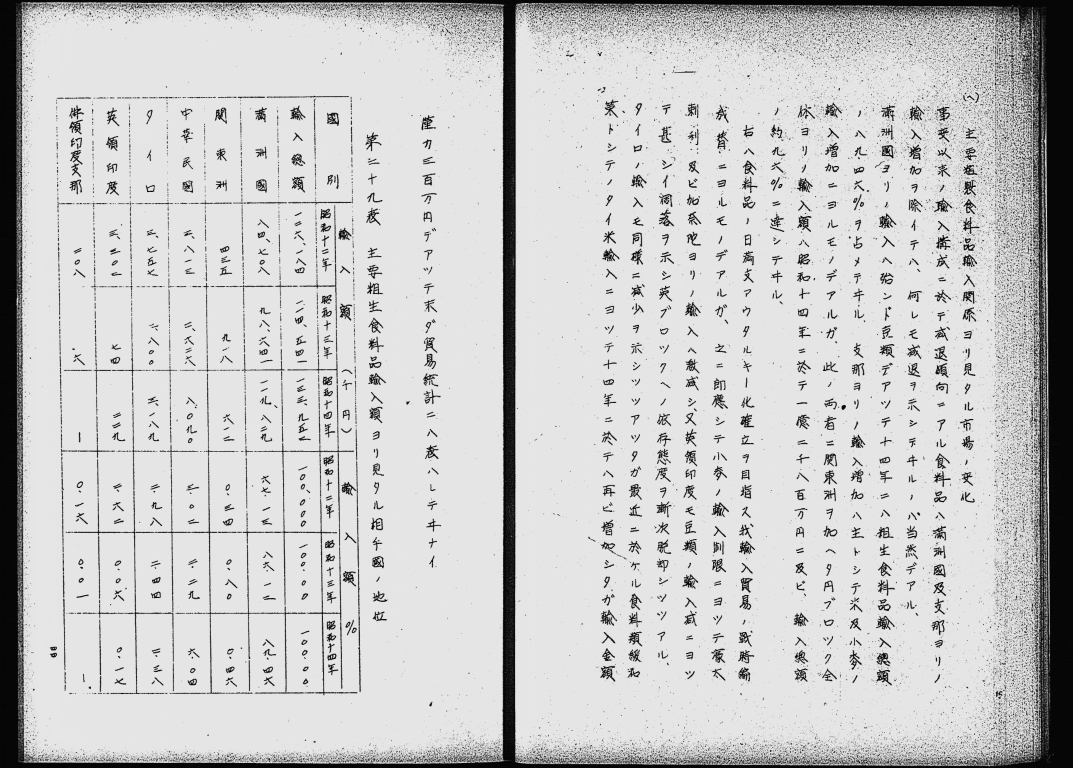 (ヘ) 主要粗製食料品輸入関係ヨリ見タル市場ノ変化
事変以来ノ輸入構成ニ於テ減退傾向ニアル食料品ハ満洲國及支那ヨリノ
輸入増加ヲ除イテハ、何レモ減退ヲ示シテヰルノハ当然デアル、
満洲國ヨリノ輸入ハ殆ンド豆類デアツテ十四年ニハ粗生食料品輸入總額
ノ八九.四六%ヲ占メテヰル. 支那ヨリノ輸入増加ハ主トシテ米及小麥ノ
輸入増加ニヨルモノデアルガ、此ノ両者ニ関東洲ヲ加ヘタ円ブロツク全
体ヨリノ輸入額ハ昭和十四年ニ於テ一億二千八百万円ニ及ビ、輸入總額
ノ約九六%ニ達シテヰル、
右ハ食料品ノ日満支アウタルキー化確立ヲ目指ス我輸入貿易ノ戰時編
成替ニヨルモノデアルガ、之ニ即應シテ小麥ノ輸入制限ニヨツテ豪太
剌利及ビ加奈陀ヨリノ輸入ハ激減シ、又英領印度モ豆類ノ輸入減ニヨツ
テ甚シイ凋落ヲ示シ英ブロツクヘノ依存態度ヲ漸次脱却シツツアル、
タイ口ノ輸入モ同様ニ減少ヲ示シツツアツタガ最近ニ於ケル食料類緩和
策トシテノタイ米輸入ニヨツテ十四年ニ於テハ再ビ増加シタガ輸入金額
僅カ三百万円デアツテ未ダ貿易統計ニハ表ハレテヰナイ
第二十九表 主要粗生食料品輸入額ヨリ見タル相手國ノ地位
國別 輸入額(千円) 輸入額%
昭和十二年 昭和十三年 昭和十四年 昭和十二年 昭和十三年 昭和十四年
輸入總額 一二六、一八四 一一四、五四一 一三三、九五二 一〇〇.〇〇〇 一〇〇.〇〇 一〇〇.〇〇
満洲國 八四、七〇八 九八、六四一 一一九、八二九 六七.一三 八六.一二 八九.四六
関東洲 四三五 九一八 六一二 〇.三四 〇.八〇 〇.四六
中華民國 三、八一三 二、六二六 八、〇九〇 三.〇二 二.二九 六.〇四
タイ口 三、七五七 二、八〇〇 三、一八九 二.九八 二.四四 二.三八
英領印度 三、三〇二 七四 二二九 二.六二 〇.〇六 〇.一七
佛領印度支那 二〇八 六 — 〇.一六 〇.〇一 —
88